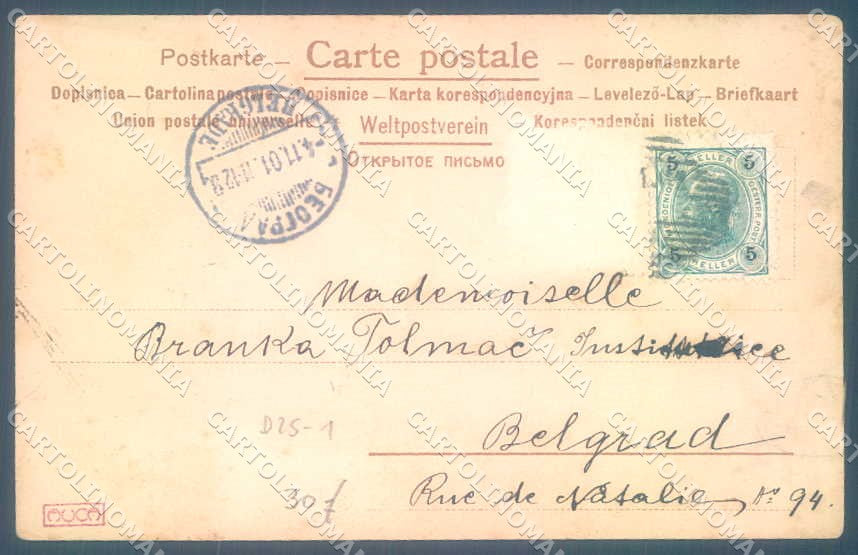 Postkarte — Carte postale — Correspondenzkarte
Dopisnica — Cartolina postale — Dopisnice — Karta korespondencyjna — Levelező-Lap — Briefkaart
Union postale universelle — Weltpostverein Korespondenční listek
ОТКРЫТОЕ ПИСЬМО
BELGRADE
4.11.01
БЕОГРАД
5 HELLER 5
5 HELLER 5
Mademoiselle
Branka Tolmač
Belgrad
Rue de Natalie, No 94.
D25-1
30
CARTOLINOMANIA